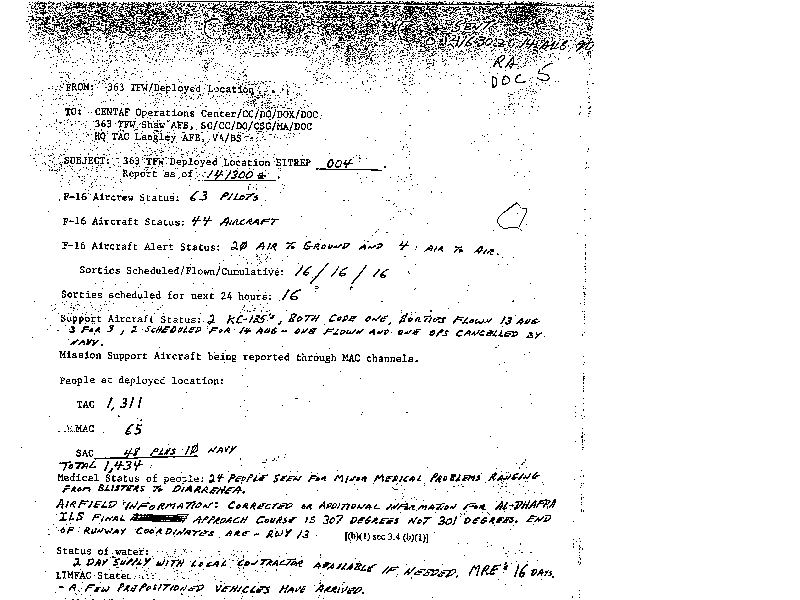 14 AUG 90
RA
DOC 5
FROM: 363 TFW/Deployed Location
TO: CENTAF Operations Center/CC/DO/DOX/DOC
363 TFW Shaw AFB, SC/CC/DO/CSG/MA/DOC
HQ TAC Langley AFB, VA/BS
SUBJECT: 363 TFW Deployed Location SITREP 004.
Report as of 141300Z.
F-16 Aircrew Status: 63 PILOTS
F-16 Aircraft Status: 44 AIRCRAFT
F-16 Aircraft Alert Status: 20 AIR TO GROUND AND 4 AIR TO AIR.
Sorties Scheduled/Flown/Cumulative: 16/16/16
Sorties scheduled for next 24 hours: 16
Support Aircraft Status: 2 KC-135s, BOTH CODE ONE, SORTIES FLOWN 13 AUG
3 FOR 3, 2 SCHEDULED FOR 14 AUG - ONE FLOWN AND ONE OPS CANCELLED BY
NAVY.
Mission Support Aircraft being reported through MAC channels.
People at deployed location:
TAC 1,311
MAC 65
SAC 48 PLUS 10 NAVY
TOTAL 1,434
Medical Status of people: 24 PEOPLE SEEN FOR MINOR MEDICAL PROBLEMS RANGING
FROM BLISTERS TO DIARREHEA.
AIRFIELD INFORMATION: CORRECTED OR ADDITIONAL INFORMATION FOR AL-DHAFRA
ILS FINAL APPROACH COURSE IS 307 DEGREES NOT 301 DEGREES. END
OF RUNWAY COORDINATES ARE - RWY 13 [(b)(1) sec 3.4 (b)(1)]
Status of water:
2 DAY SUPPLY WITH LOCAL CONTRACTOR AVAILABLE IF NEEDED. MRE'S 16 DAYS.
LIMFAC State:
- A FEW PREPOSITIONED VEHICLES HAVE ARRIVED.